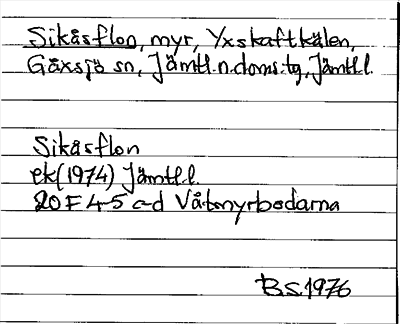 Sikåsflon, myr, Yxskaftkälen,
Gåxsjö sn, Jämtl.n.doms:tg, Jämtl.l.
Sikåsflon
ek(1974) Jämtl.l.
20F 4-5 c-d Våtmyrbodarna
B.S.1976